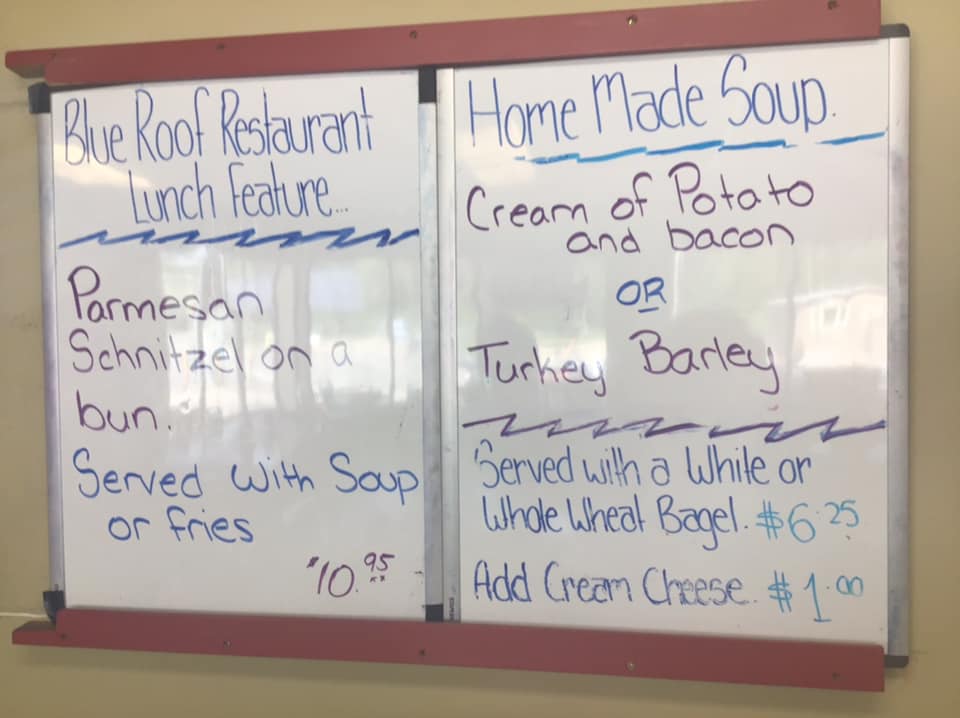 Blue Roof Restaurant
Lunch Feature...
Parmesan
Schnitzel on a
bun.
Served with Soup
or fries
$10.95
Home Made Soup.
Cream of Potato
and bacon
OR
Turkey Barley
Served with a White or
Whole Wheat Bagel. $6.25
Add Cream Cheese. $1.00